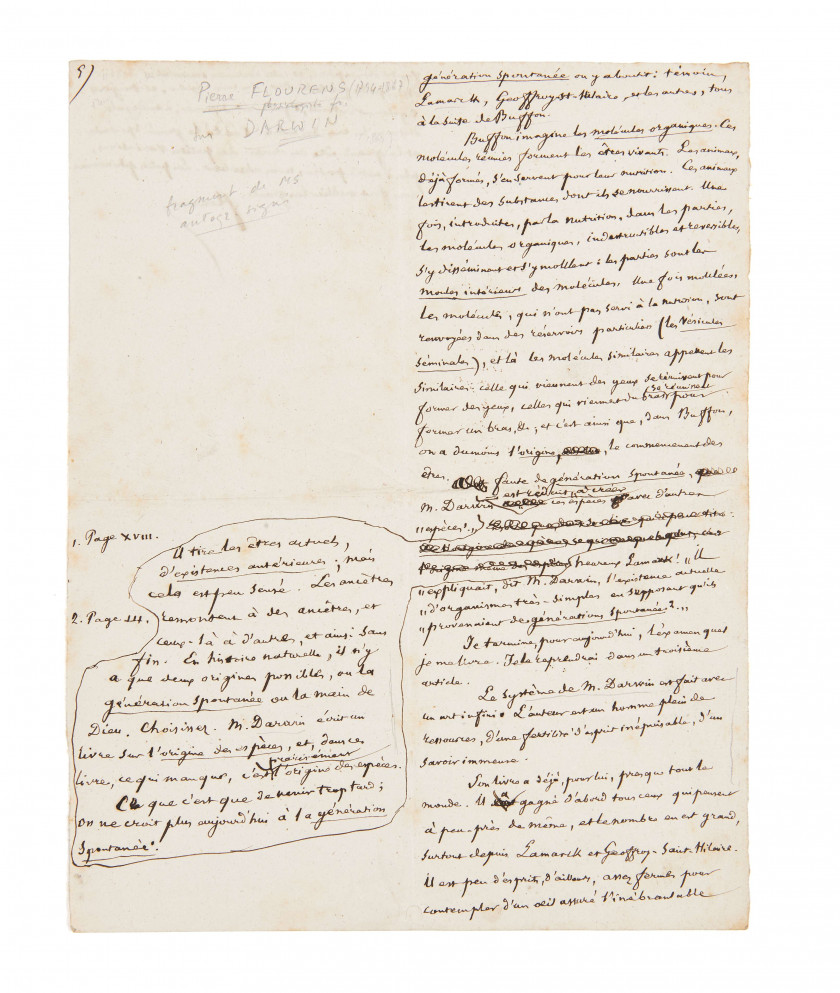 5)
Pierre FLOURENS (1794-1867)
sur DARWIN
fragment de MS
autogr. signé
1. Page XVIII.
2. Page 14.
Il tire les êtres actuels,
d'existences antérieures; mais
cela est peu sensé. Les ancêtres
remontent à des ancêtres, et
ceux-là à d'autres, et ainsi sans
fin. En histoire naturelle, il n'y
a que deux origines possibles, ou la
génération spontanée ou la main de
Dieu. Choisissez. M. Darwin écrit un
livre sur l'origine des espèces, et, dans ce
livre, ce qui manque, c'est précisément l'origine des espèces.
Ce que c'est que de venir trop tard;
on ne croit plus aujourd'hui à la génération
spontanée.
génération spontanée on y aboutit: témoin,
Lamarck, Geoffroy-St-Hilaire, et les autres, tous
à la suite de Buffon.
Buffon imagine les molécules organiques. Ces
molécules réunies forment les êtres vivants. Les animaux,
déjà formés, s'en servent pour leur nutrition. Ces animaux
les tirent des substances dont ils se nourrissent. Une
fois, introduites, par la nutrition, dans les parties,
les molécules organiques, indestructibles et reversibles,
s'y disséminent et s'y moulent: les parties sont les
moules intérieurs des molécules. Une fois moulées,
les molécules, qui n'ont pas servi à la nutrition, sont
renvoyées dans des réservoirs particuliers (les vésicules
séminales), et là les molécules similaires appellent les
similaires: celles qui viennent des yeux se réunissent pour
former des yeux, celles qui viennent du bras se réunissent pour
former un bras, &c; et c'est ainsi que, dans Buffon,
on a du moins l'origine, le commencement des
êtres. faute de génération spontanée,
M. Darwin est réduit à créer ces espèces avec d'autres
"espèces."
heureux Lamarck! "Il
"expliquait, dit M. Darwin, l'existence actuelle
"d'organismes très-simples en supposant qu'ils
"provenaient de générations spontanées 2."
Je termine, pour aujourd'hui, l'examen que
je me livre. Je le reprendrai dans un troisième
article.
Le système de M. Darwin est fait avec
un art infini. L'auteur est un homme plein de
ressources, d'une fertilité d'esprit inépuisable, d'un
savoir immense.
Son livre a déjà, pour lui, presque tout le
monde. Il a gagné d'abord tous ceux qui pensent
à peu-près de même, et le nombre en est grand,
surtout depuis Lamarck et Geoffroy-Saint-Hilaire.
Il est peu d'esprits, d'ailleurs, assez fermes pour
contempler d'un œil assuré l'inébranlable